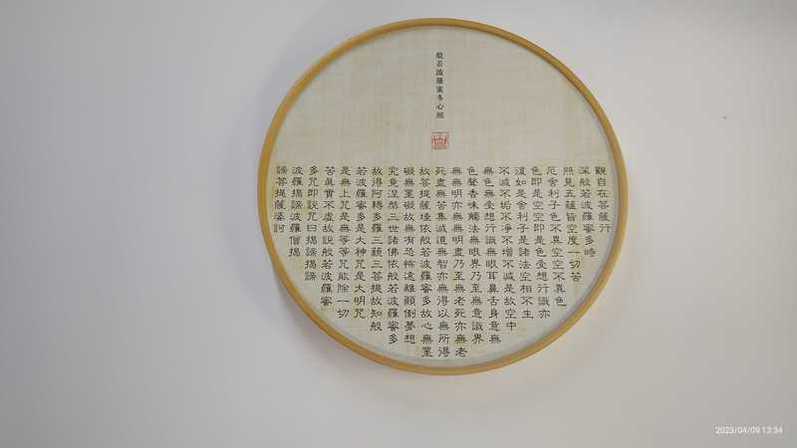 般若波羅蜜多心經
觀自在菩薩行
深般若波羅蜜多時
照見五蘊皆空度一切苦
厄舍利子色不異空空不異色
色即是空空即是色受想行識亦
復如是舍利子是諸法空相不生
不滅不垢不淨不增不減是故空中
無色無受想行識無眼耳鼻舌身意無
色聲香味觸法無眼界乃至無意識界
無無明亦無無明盡乃至無老死亦無老
死盡無苦集滅道無智亦無得以無所得
故菩提薩埵依般若波羅蜜多故心無罣
礙無罣礙故無有恐怖遠離顛倒夢想
究竟涅槃三世諸佛依般若波羅蜜多
故得阿耨多羅三藐三菩提故知般
若波羅蜜多是大神咒是大明咒
是無上咒是無等等咒能除一切
苦真實不虛故說般若波羅蜜
多咒即說咒曰揭諦揭諦
波羅揭諦波羅僧揭
諦菩提薩婆訶
2023/04/09 13:34